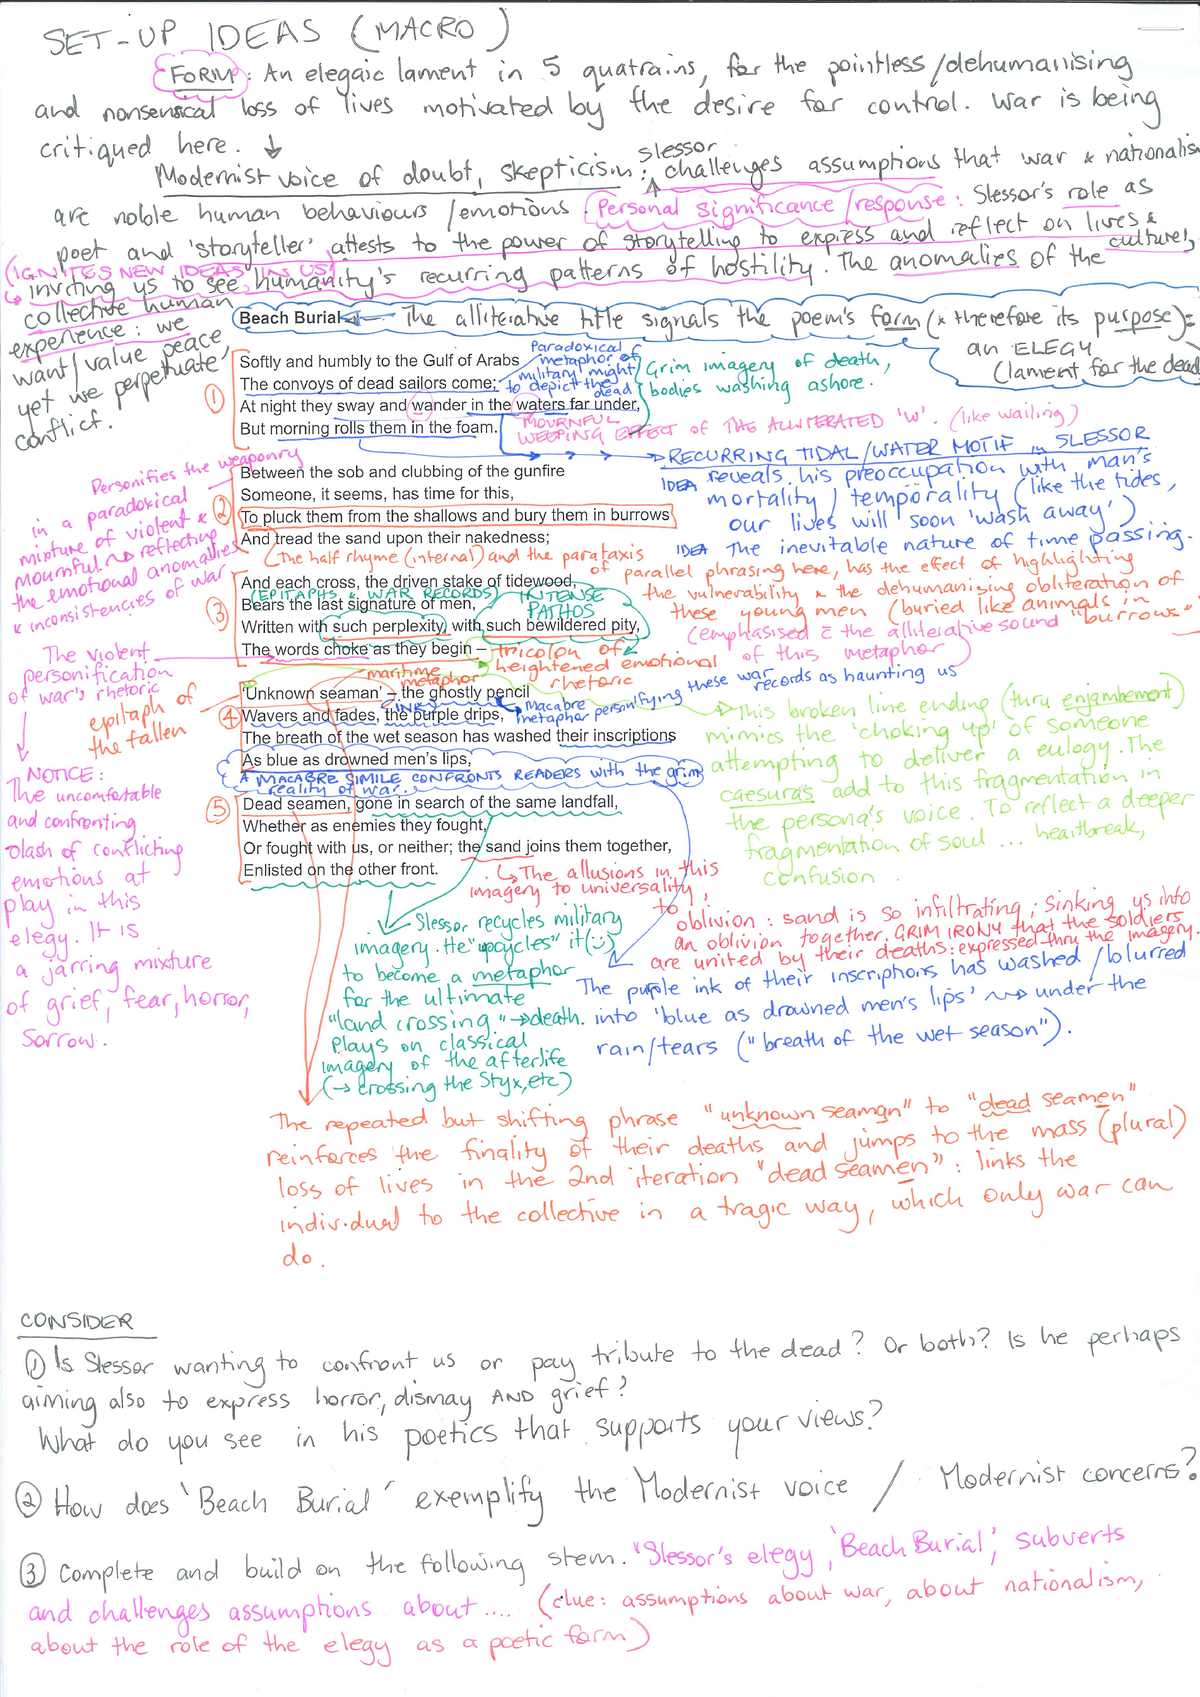 SET-UP IDEAS (MACRO)
FORM: An elegaic lament in 5 quatrains, for the pointless/dehumanising
and nonsensical loss of lives motivated by the desire for control. War is being
critiqued here. ↓
Modernist voice of doubt, skepticism: Slessor challenges assumptions that war & nationalism
are noble human behaviours/emotions. Personal significance/response: Slessor's role as
poet and 'storyteller' attests to the power of storytelling to express and reflect on lives &
culture,
(IGNITES NEW IDEAS IN US)
inviting us to see humanity's recurring patterns of hostility. The anomalies of the
collective human
experience: we
want/value peace,
yet we perpetuate
conflict.
Beach Burial ← The alliterative title signals the poem's form (& therefore its purpose):
an ELEGY
(lament for the dead
① Softly and humbly to the Gulf of Arabs
The convoys of dead sailors come;
At night they sway and wander in the waters far under,
But morning rolls them in the foam.
Paradoxical
metaphor of
military might
to depict the
dead
Grim imagery of death,
bodies washing ashore.
MOURNFUL
WEEPING EFFECT OF THE ALLITERATED 'W'. (like wailing)
→ RECURRING TIDAL/WATER MOTIF in SLESSOR
IDEA reveals his preoccupation with man's
mortality / temporality (like the tides,
our lives will soon 'wash away')
IDEA The inevitable nature of time passing.
Personifies the weaponry
in a paradoxical
mixture of violent &
mournful → reflecting
the emotional anomalies
& inconsistencies of war
② Between the sob and clubbing of the gunfire
Someone, it seems, has time for this,
To pluck them from the shallows and bury them in burrows
And tread the sand upon their nakedness;
(The half rhyme (internal) and the parataxis
of parallel phrasing here, has the effect of highlighting
the vulnerability & the dehumanising obliteration of
these young men (buried like animals in
"burrows"
(emphasised c̄ the alliterative sound
of this metaphor)
③ And each cross, the driven stake of tidewood,
(EPITAPHS & WAR RECORDS)
Bears the last signature of men,
Written with such perplexity, with such bewildered pity,
The words choke as they begin –
INTENSE
PATHOS
tricolon of
heightened emotional
rhetoric
The violent
personification
of war's rhetoric
epitaph of
the fallen
maritime
metaphor
④ 'Unknown seaman' – the ghostly pencil
Wavers and fades, the purple drips,
The breath of the wet season has washed their inscriptions
As blue as drowned men's lips,
INK
Macabre
metaphor personifying these war
records as haunting us
A MACABRE SIMILE CONFRONTS READERS with the grim
reality of war.
This broken line ending (thru enjambement)
mimics the 'choking up' of someone
attempting to deliver a eulogy. The
caesuras add to this fragmentation in
the persona's voice. To reflect a deeper
fragmentation of soul ... heartbreak,
confusion.
NOTICE:
The uncomfortable
and confronting
clash of conflicting
emotions at
play in this
elegy. It is
a jarring mixture
of grief, fear, horror,
sorrow.
⑤ Dead seamen, gone in search of the same landfall,
Whether as enemies they fought,
Or fought with us, or neither; the sand joins them together,
Enlisted on the other front.
↳ The allusions in this
imagery to universality,
to
oblivion: sand is so infiltrating; sinking us into
an oblivion together. GRIM IRONY that the soldiers
are united by their deaths: expressed thru the imagery.
Slessor recycles military
imagery. He "upcycles" it (:)
to become a metaphor
for the ultimate
"land crossing." → death.
Plays on classical
imagery of the afterlife
(→ crossing the Styx, etc)
The purple ink of their inscriptions has washed/blurred
into 'blue as drowned men's lips' → under the
rain/tears ("breath of the wet season").
The repeated but shifting phrase "unknown seaman" to "dead seamen"
reinforces the finality of their deaths and jumps to the mass (plural)
loss of lives in the 2nd iteration "dead seamen": links the
individual to the collective in a tragic way, which only war can
do.
CONSIDER
① Is Slessor wanting to confront us or pay tribute to the dead? Or both? Is he perhaps
aiming also to express horror, dismay AND grief?
What do you see in his poetics that supports your views?
② How does 'Beach Burial' exemplify the Modernist voice / Modernist concerns?
③ Complete and build on the following stem. "Slessor's elegy, 'Beach Burial', subverts
and challenges assumptions about .... (clue: assumptions about war, about nationalism,
about the role of the elegy as a poetic form)